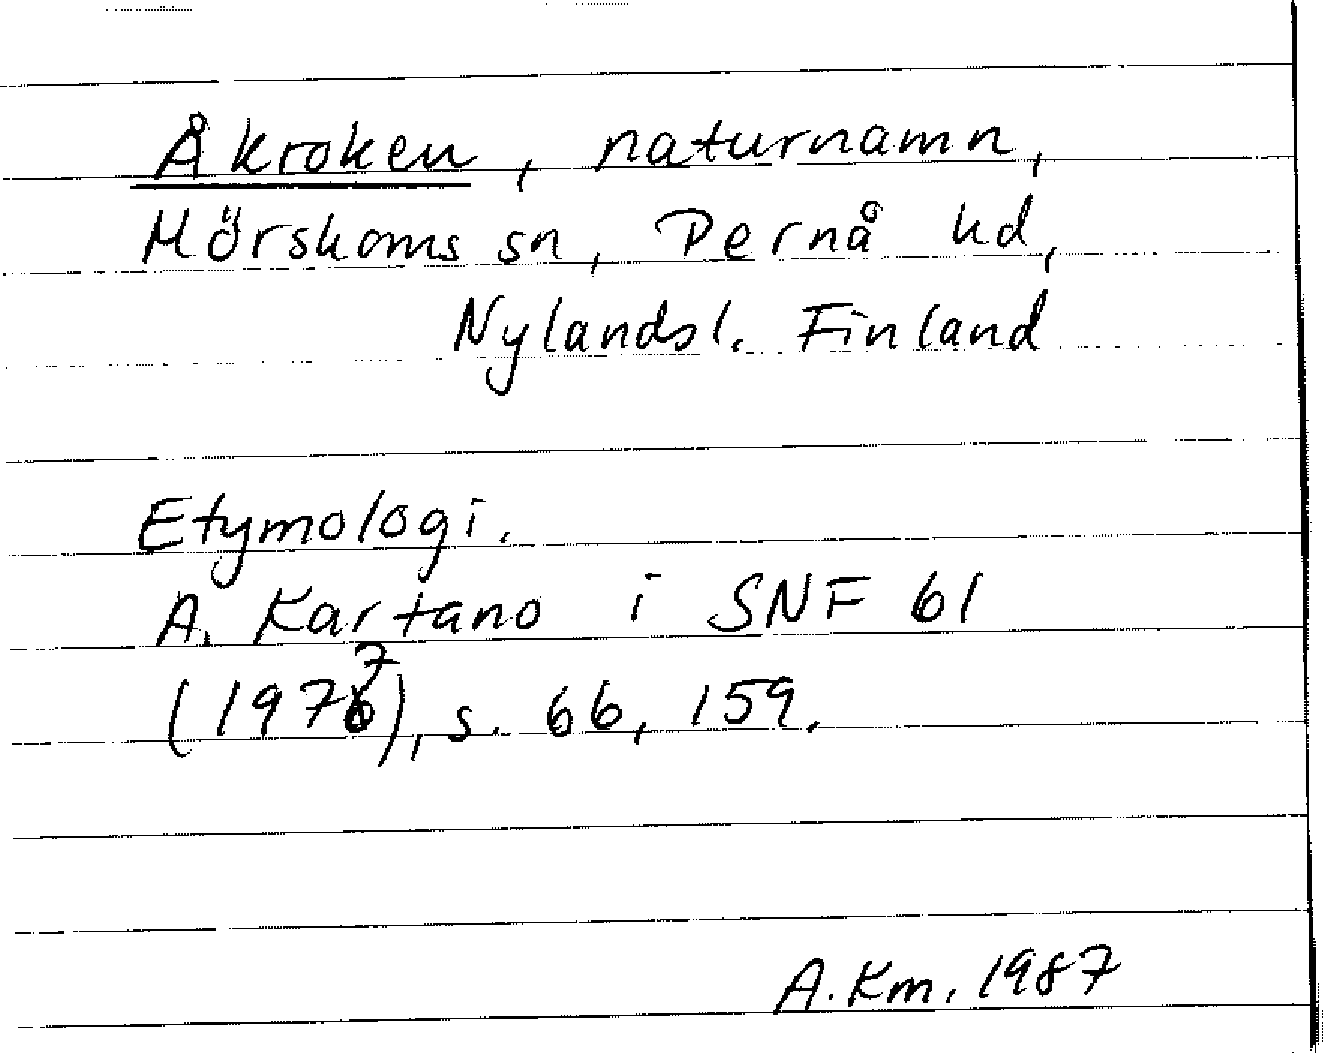 Åkroken, naturnamn,
Mörskoms sn, Pernå hd,
Nylandsl. Finland
Etymologi.
A. Kartano i SNF 61
(1977), s. 66, 159.
A.Km. 1987